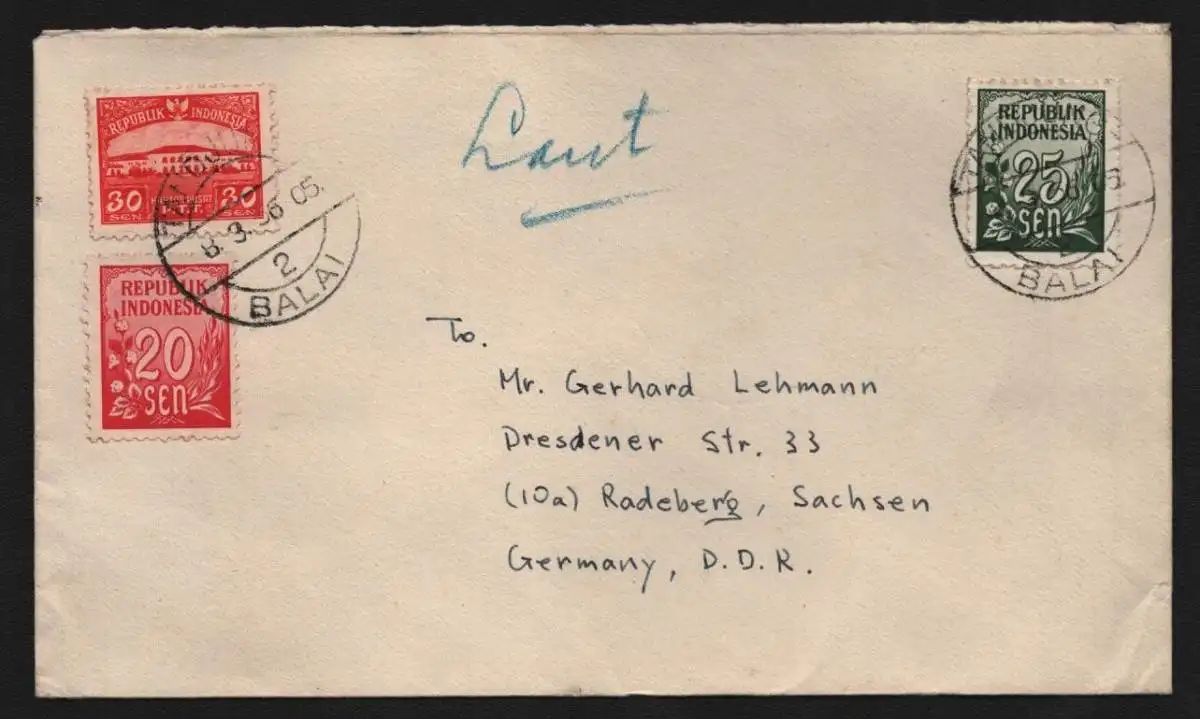 REPUBLIK INDONESIA
30 30
SEN SEN
8.3.56 05.
2
BALAI
REPUBLIK
INDONESIA
20
SEN
Laut
REPUBLIK
INDONESIA
25
SEN
BALAI
To.
Mr. Gerhard Lehmann
Dresdener Str. 33
(10a) Radeberg, Sachsen
Germany, D.D.R.